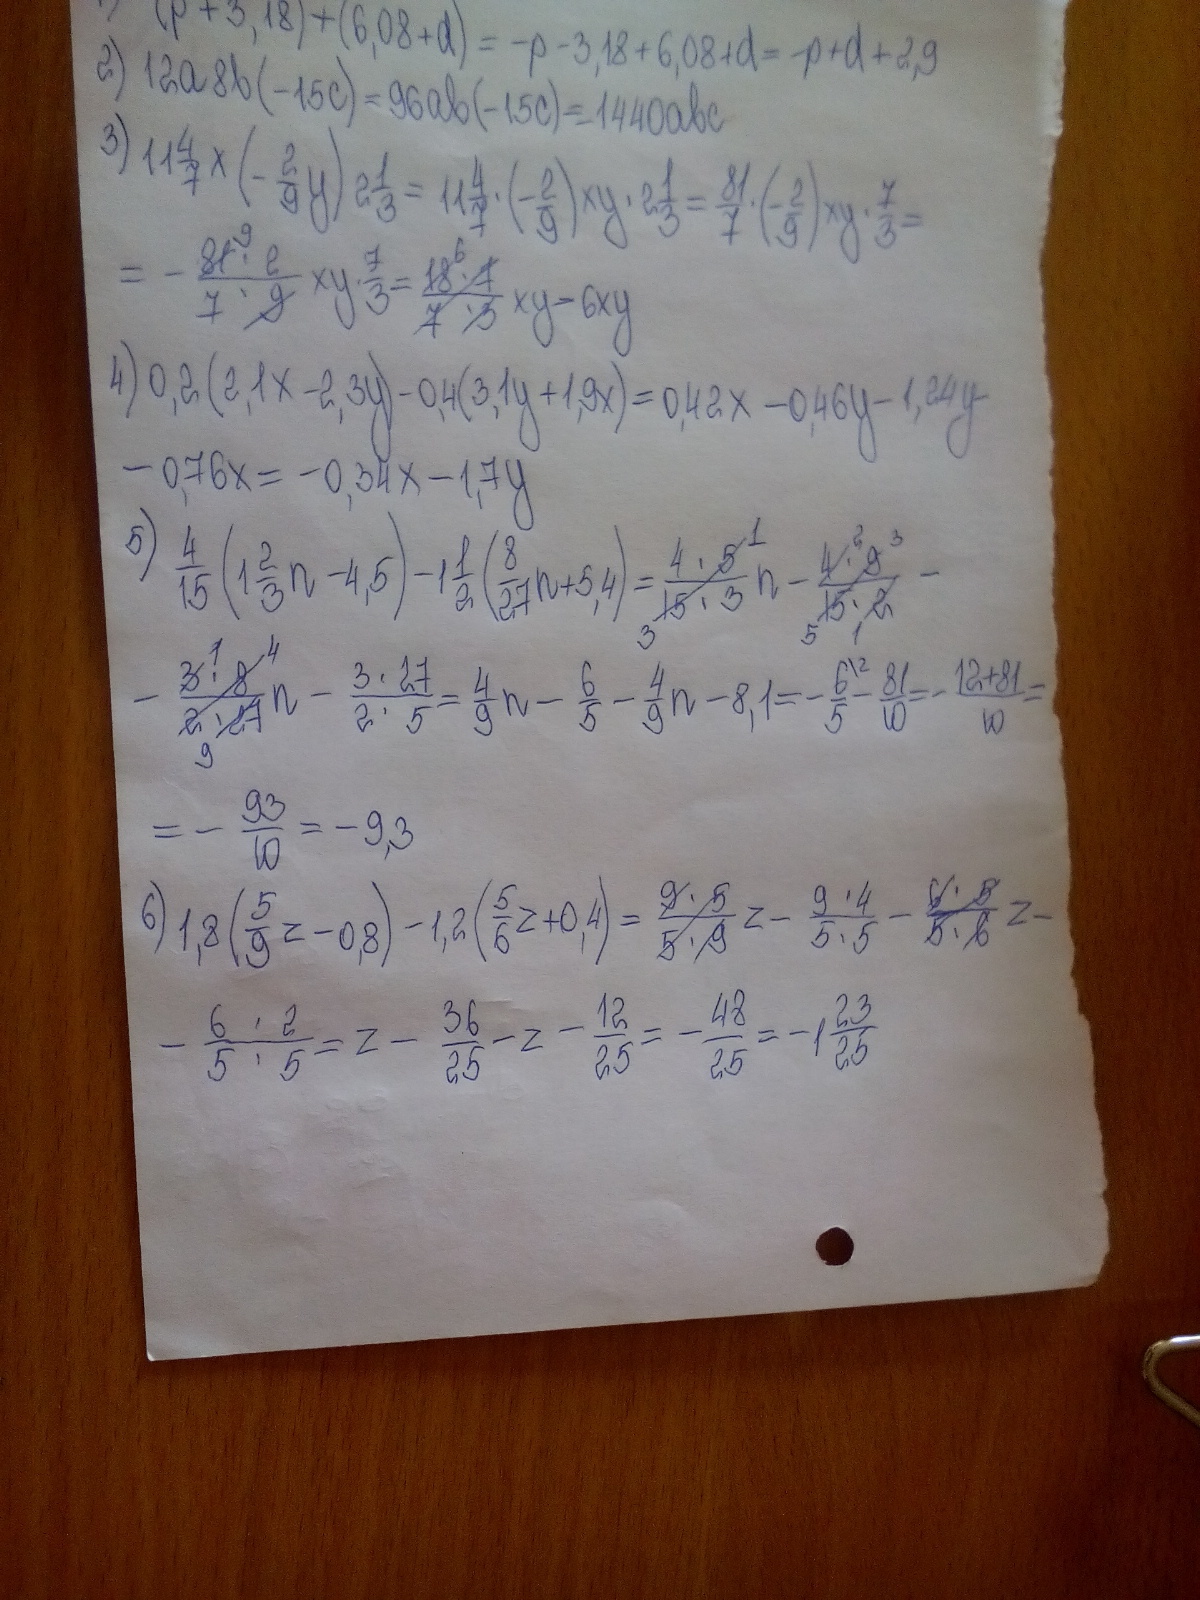 1) (p+3,18)+(6,08+d)=-p-3,18+6,08+d=-p+d+2,9
2) 12a8b(-15c)=96ab(-15c)=-1440abc
3) 11 4/7 x (-2/9 y) 2 1/3 = 11 4/7 · (-2/9) xy · 2 1/3 = 81/7 · (-2/9) xy · 7/3 =
= - 81 9 · 2 / 7 · 9 xy · 7/3 = 18 6 · 7 / 7 · 3 xy - 6xy
4) 0,2(2,1x-2,3y)-0,4(3,1y+1,9x)=0,42x-0,46y-1,24y-
-0,76x=-0,34x-1,7y
5) 4/15 (1 2/3 n - 4,5) - 1 1/2 (8/27 n + 5,4) = 4 · 5 1 / 3 15 · 3 n - 4 2 · 9 3 / 5 15 · 2 1 -
- 3 1 · 8 4 / 2 · 27 9 n - 3 · 27 / 2 · 5 = 4/9 n - 6/5 - 4/9 n - 8,1 = - 6/5 \2 - 81/10 = - 12+81 / 10 =
= - 93/10 = -9,3
6) 1,8(5/9 z - 0,8) - 1,2(5/6 z + 0,4) = 9 · 5 / 5 · 9 z - 9 · 4 / 5 · 5 - 6 · 5 / 5 · 6 z -
- 6 · 2 / 5 · 5 = z - 36/25 - z - 12/25 = - 48/25 = -1 23/25